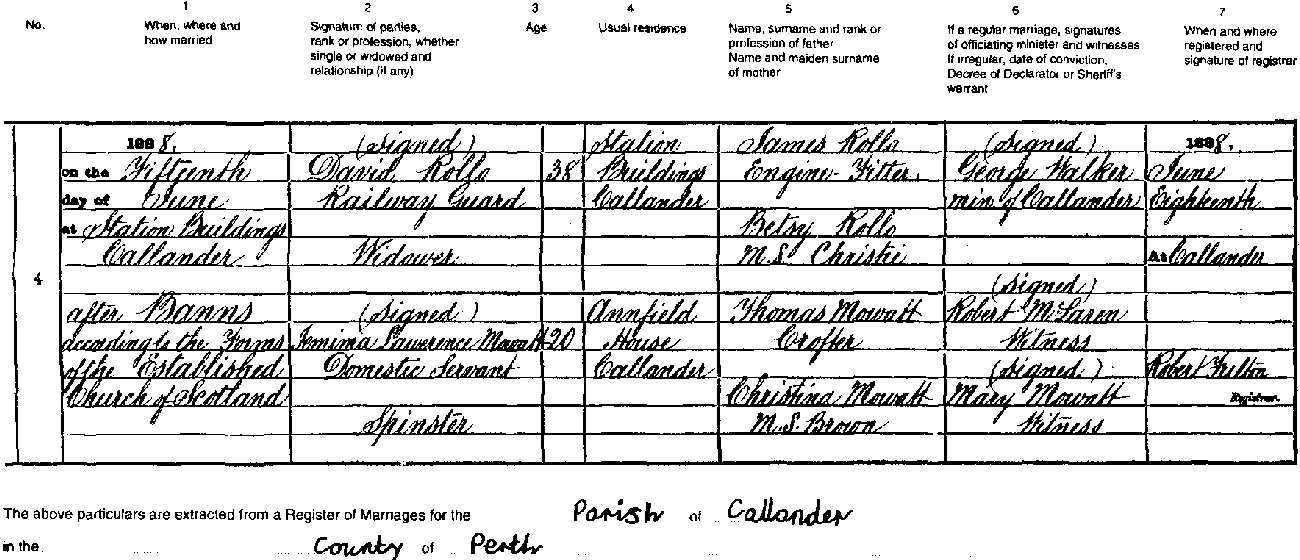 1 2 3 4 5 6 7
No. When, where and how married
Signature of parties, rank or profession, whether single or widowed and relationship (if any)
Age
Usual residence
Name, surname and rank or profession of father
Name and maiden surname of mother
If a regular marriage, signatures of officiating minister and witnesses
If irregular, date of conviction, Decree of Declarator or Sheriff's warrant
When and where registered and signature of registrar
4
1898.
on the Fifteenth
day of June
at Station Buildings
Callander
after Banns
according to the Forms
of the Established
Church of Scotland
(Signed)
David Rollo
Railway Guard
Widower
(Signed)
Jemima Lawrence Mowatt
Domestic Servant
Spinster
38
20
Station
Buildings
Callander
Annfield
House
Callander
James Rollo
Engine-Fitter
Betsy Rollo
M.S. Christie
Thomas Mowatt
Crofter
Christina Mowatt
M.S. Brown
(Signed)
George Walker
min of Callander
(Signed)
Robert McLaren
Witness
(Signed)
Mary Mowatt
Witness
1898.
June
Eighteenth
At Callander
Robert
Registrar.
The above particulars are extracted from a Register of Marriages for the Parish of Callander
in the County of Perth